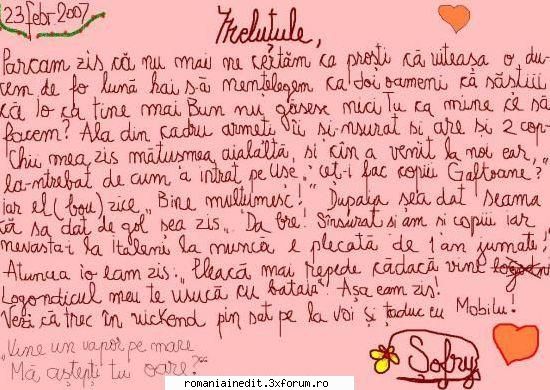 23 febr 2007
Irelutule,
Parcam zis că nu mai ne certăm ca proști că uiteasa o du-
cem de fo lună hai s-ă mențelegem ca doi oameni că săstiii
că Io ca tine mai Bun nu găsesc nici Tu ca mine ce să
facem? Ala din cadru armeti îi si-nsurat si are și 2 cop-
"Chiu mea zis mătușmea aialaltă, si cîn a venit la noi ear,
la-ntrebat de cum a intrat pe Use "ce-i fac copiii Galțoane?"
iar el (bou) zice "Bine mulțumesc!" Dupaia sea dat seama
că sa dat de gol sea zis "Da bre! Sînsurat si am si copiii iar
nevasta-i la Italeni la muncă e plecată de 1 an jumate!"
Atuncea io eam zis: "Pleacă mai repede cădacă vine
Logondicul meu te usucă cu bataia". Așa eam zis!
Vezi că trec în uickend pin sat pe la voi și țaduc cu Mobilu!
"Vine un vapor pe mare
Mă aștepți tu oare?"
Șofry
romaniainedit.3xforum.ro